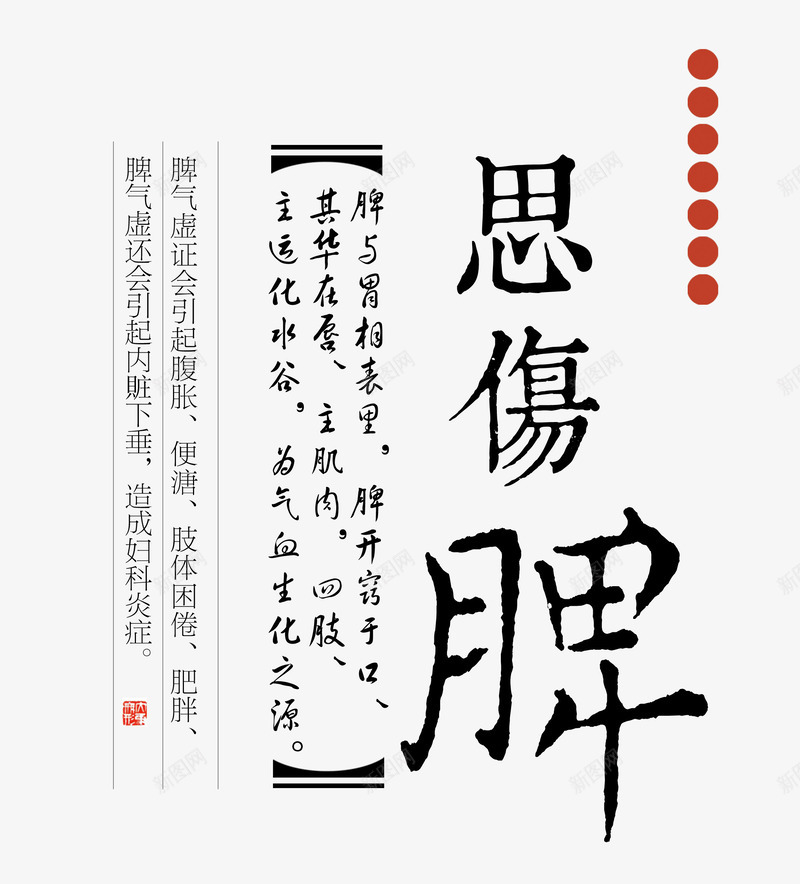 思
傷
脾
脾与胃相表里，脾开窍于口、
其华在唇、主肌肉，四肢、
主运化水谷，为气血生化之源。
脾气虚证会引起腹胀、便溏、肢体困倦、肥胖、
脾气虚还会引起内脏下垂，造成妇科炎症。
新图网